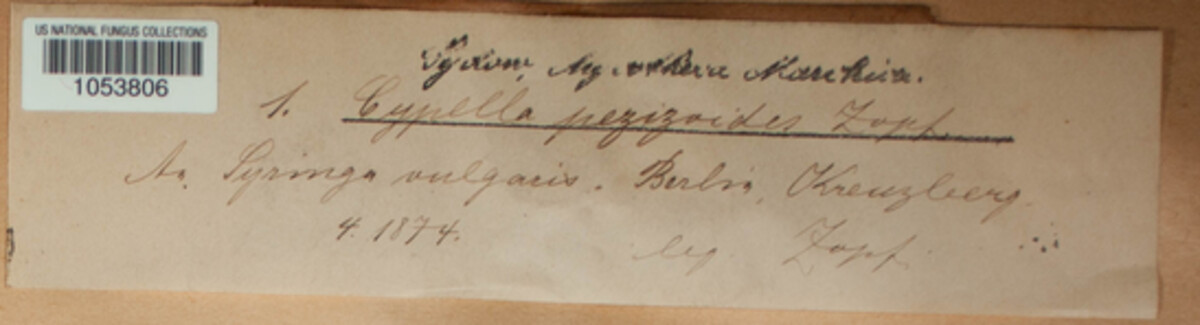 US NATIONAL FUNGUS COLLECTIONS
1053806
Sydow, Mycotheca Marchica.
1. Cypella pezizoides Zopf
An Syringa vulgaris. Berlin, Kreuzberg.
4. 1874. leg. Zopf